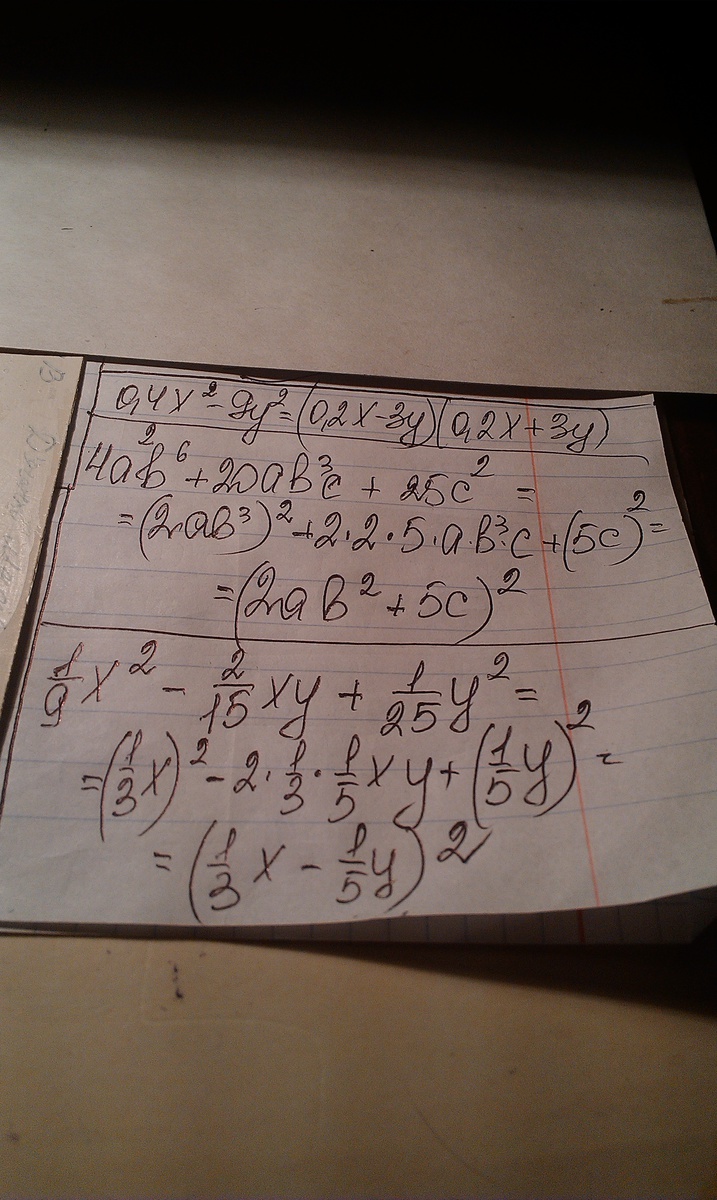 0,4x² - 9y² = (0,2x - 3y)(0,2x + 3y)
4a²b⁶ + 20ab³c + 25c² =
= (2ab³)² + 2·2·5·a·b³·c + (5c)² =
= (2ab² + 5c)²
1/9 x² - 2/15 xy + 1/25 y² =
= (1/3 x)² - 2·1/3·1/5 xy + (1/5 y)² =
= (1/3 x - 1/5 y)²